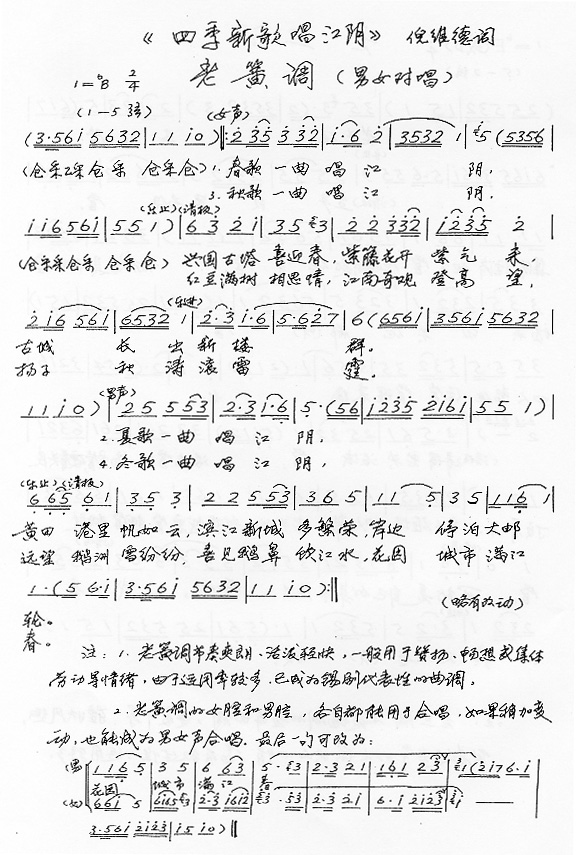 《四季新歌唱江阴》 倪维德词
1=♭B 2/4 老簧调（男女对唱）
(1—5弦) (女声)
(3·56i 5632|1 1 i0)‖:2̇ 3̇5̇ 3̇ 3̇2̇|i·6 2̇|3532 1|5 (5356|
(仓采乙采仓采 仓采仓) 1.春歌一曲 唱 江 阴.
3.秋歌一曲 唱 江 阴.
(乐止)(清板)
ii6 56i|5 5 1)|6 3̇ 2̇ i|3 5 3|2̇ 2̇ 3̇3̇2̇|i2̇3̇5̇ 2̇|
(仓采采仓采 仓采仓) 兴国古塔 喜迎春, 紫藤花开 紫气 来,
红豆满树 相思情, 江南奇观 登高 望,
(乐进)
2̇ i6 56i|6532 1|2̇·3̇ i·6|5·627|6(656i|356i 5632|
古城 长 出新 楼 群。
扬子 秋 涛滚雪 霁。
(男声)
1 1 i0)|2 5 553|2·3 1·6|5·(56|i2̇3̇5̇ 2̇i6i|5 5 1)|
2.夏歌一曲 唱 江 阴,
4.冬歌一曲 唱 江 阴,
(乐止)(清板)
6 65 6 1|3 5 3|2 2 553|3 6 5|1 1 5|3 5|116 1|
黄田 港里 帆如云, 滨江新城 多繁荣, 岸边 停泊大邮
远望 鹅洲 雪纷纷, 喜见鹅鼻 饮江水, 花园 城市 满江
1·(5 6·i|3·56i 5632|1 1 i0):‖
轮。 (略有ㄉ动)
春。
注：1. 老簧调节奏爽朗、活泼轻快，一般用于赞扬、畅想或集体
劳动等情绪，由于运用率较多，已成为锡剧代表性的曲调。
2. 老簧调的女腔和男腔，各自都能用于合唱，如果稍加变
动，也能成为男女声合唱。最后一句可改为：
(男) 116 5|3 5|6 63|5·3|2·3 21|161 23|1(2̇i76·i|
花园 城市 满江 春
(女) 661 5
3·56i 2̇i2̇3̇|i5 i0)‖